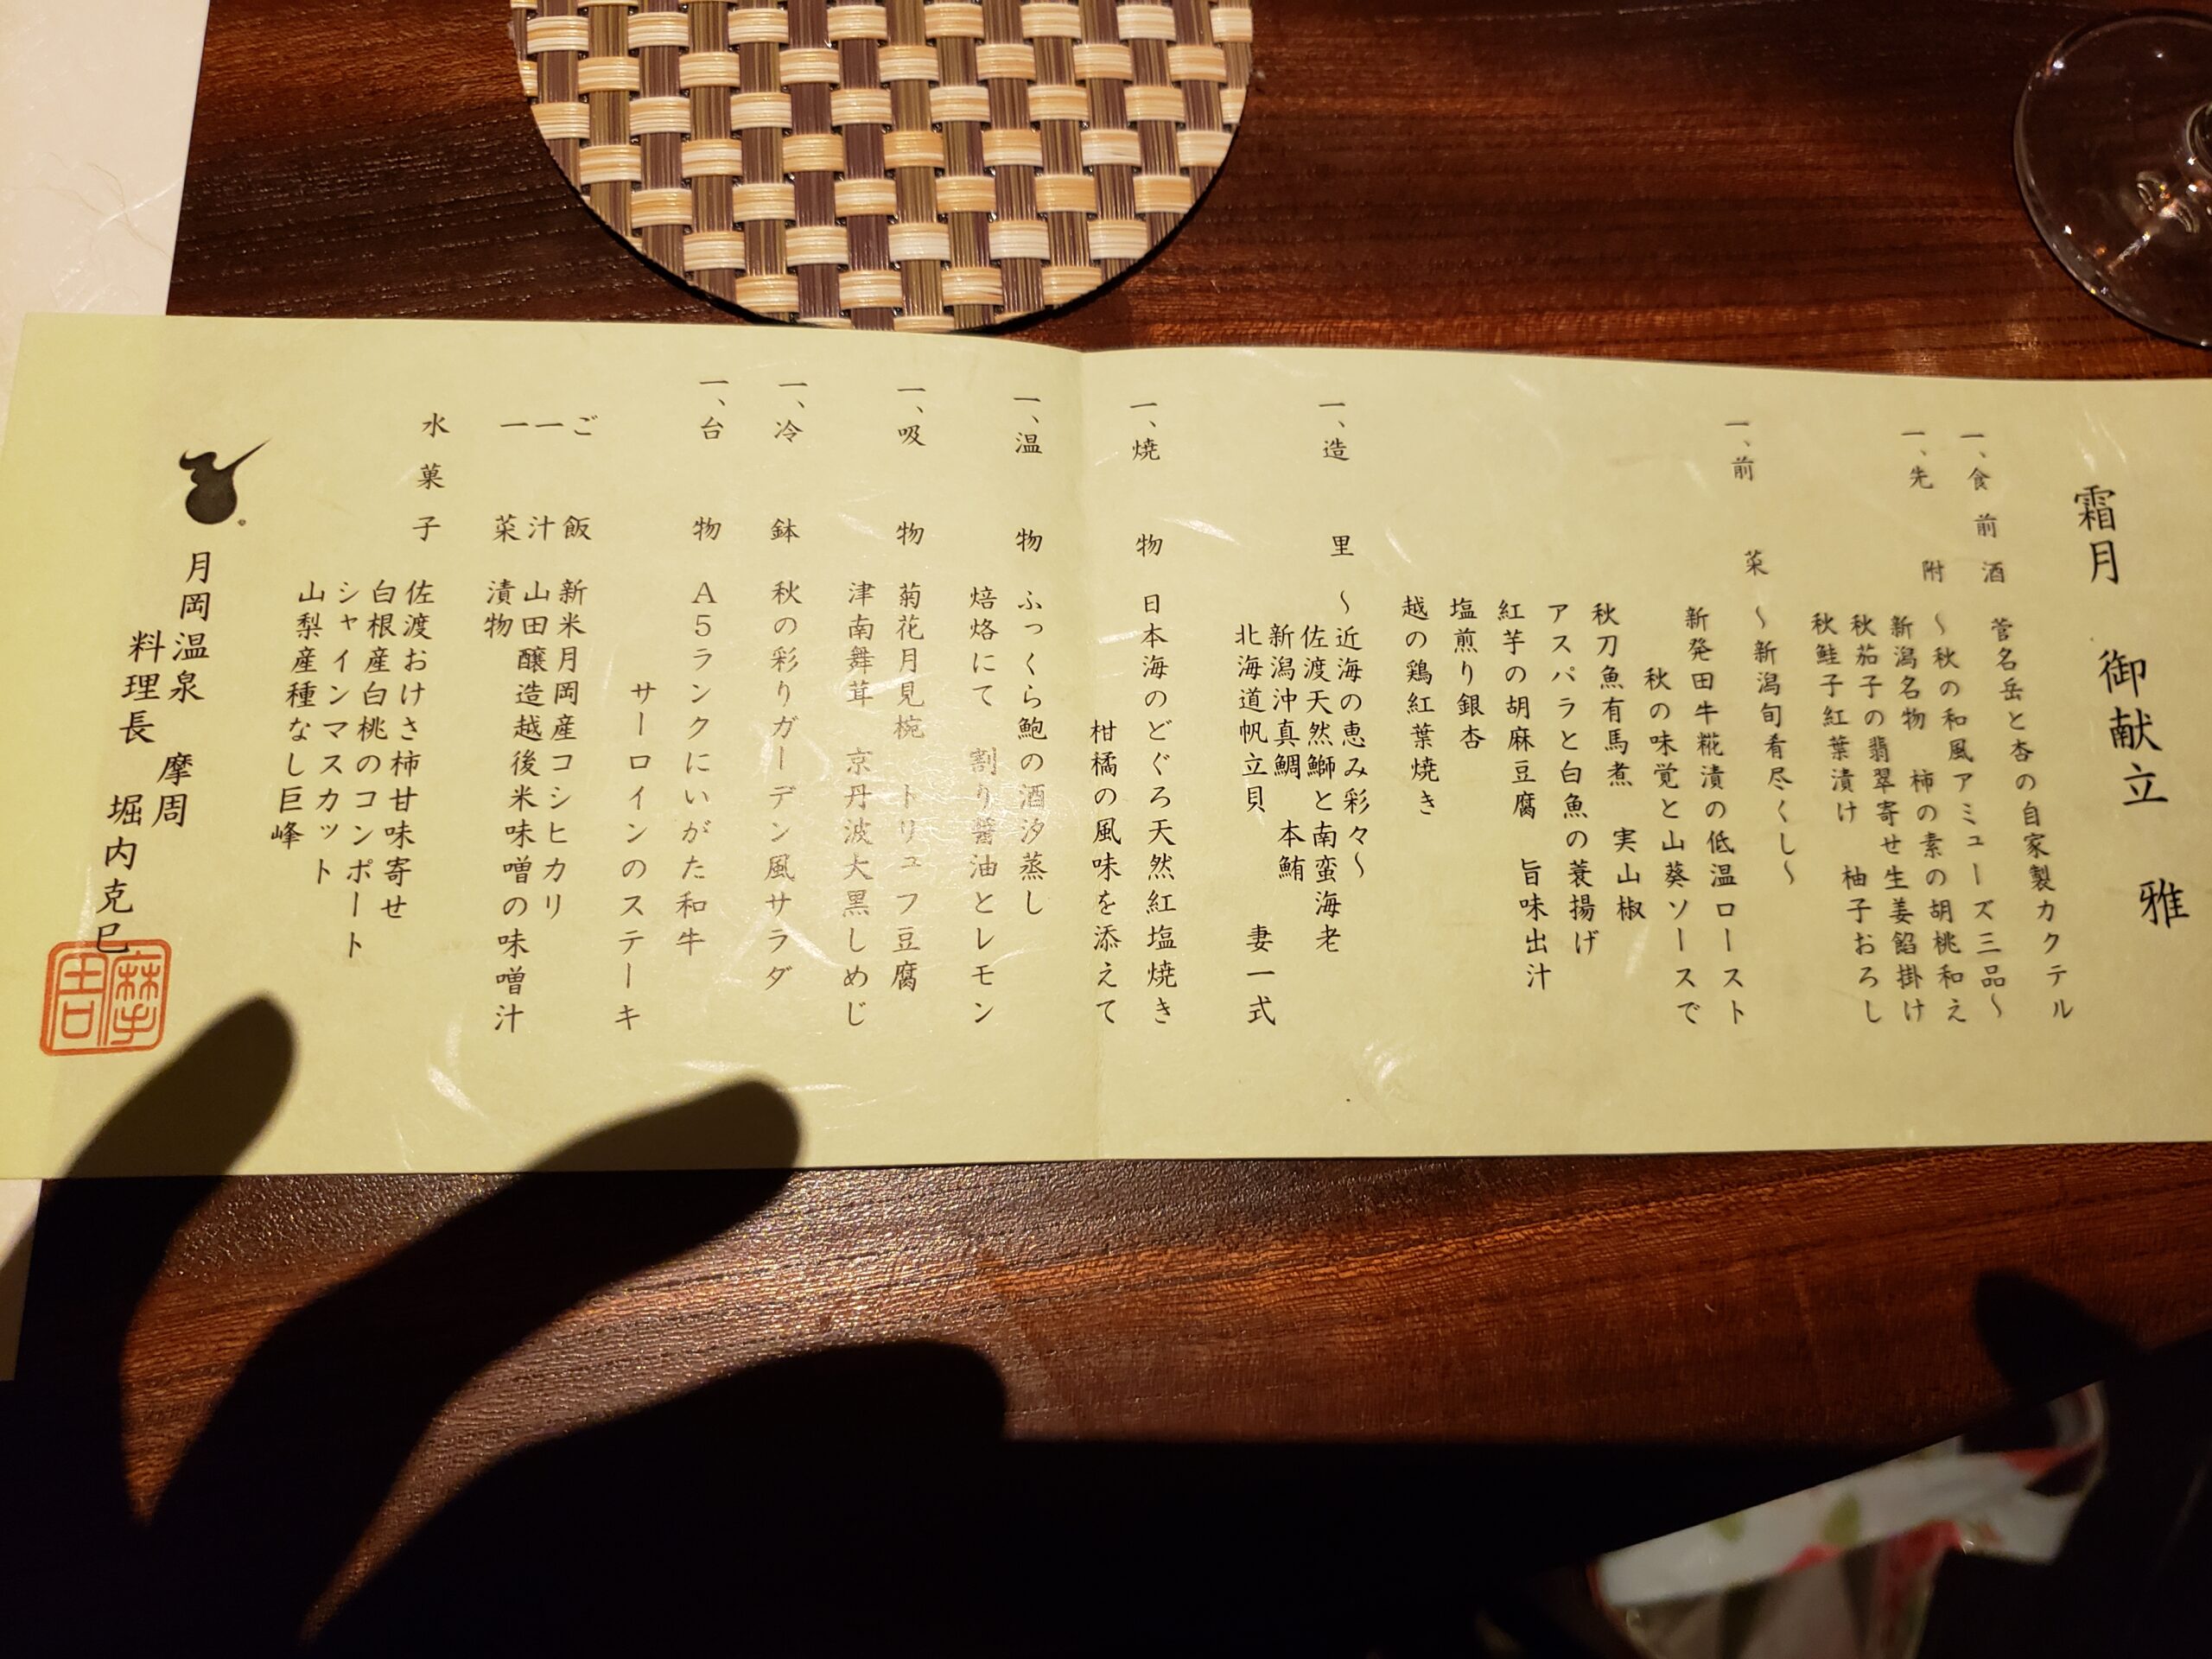 霜月 御献立 雅
一、食前酒 菅名岳と杏の自家製カクテル
一、先附 〜秋の和風アミューズ三品〜
新潟名物 柿の素の胡桃和え
秋茄子の翡翠寄せ生姜餡掛け
秋鮭子紅葉漬け 柚子おろし
一、前菜 〜新潟旬肴尽くし〜
新発田牛糀漬の低温ロースト
秋の味覚と山葵ソースで
秋刀魚有馬煮 実山椒
アスパラと白魚の蓑揚げ
紅芋の胡麻豆腐 旨味出汁
塩煎り銀杏
越の鶏紅葉焼き
一、造里 〜近海の恵み彩々〜
佐渡天然鰤と南蛮海老
新潟沖真鯛 本鮪
北海道帆立貝 妻一式
一、焼物 日本海のどぐろ天然紅塩焼き
柑橘の風味を添えて
一、温物 ふっくら鮑の酒汐蒸し
焙烙にて 割り醤油とレモン
一、吸物 菊花月見椀 トリュフ豆腐
津南舞茸 京丹波大黒しめじ
一、冷鉢 秋の彩りガーデン風サラダ
一、台物 A5ランクにいがた和牛
サーロインのステーキ
ご飯 新米月岡産コシヒカリ
一汁 山田醸造越後米味噌の味噌汁
一菜 漬物
水菓子 佐渡おけさ柿甘味寄せ
白根産白桃のコンポート
シャインマスカット
山梨産種なし巨峰
月岡温泉 摩周
料理長 堀内克巳
摩周